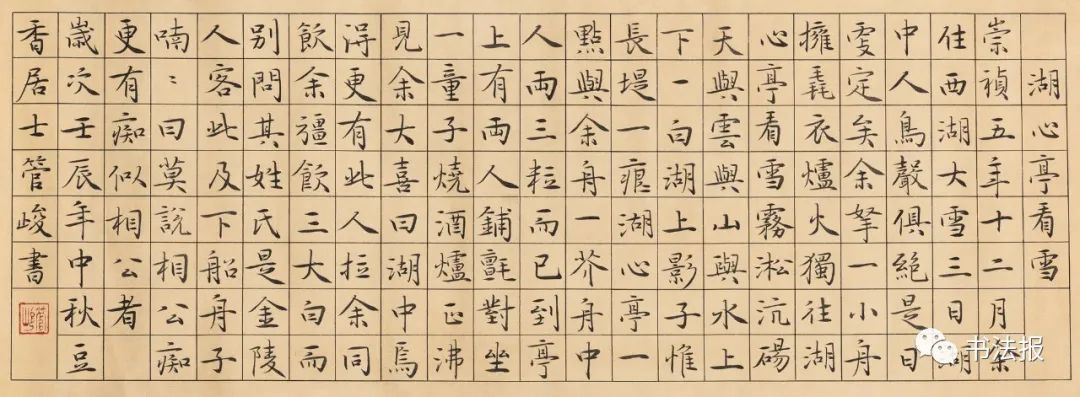 湖心亭看雪
崇禎五年十二月余
住西湖大雪三日湖
中人鳥聲俱絕是日
雯定矣余拏一小舟
擁毳衣爐火獨往湖
心亭看雪霧淞沆碭
天與雲與山與水上
下一白湖上影子惟
長堤一痕湖心亭一
點與余舟一芥舟中
人兩三粒而已到亭
上有兩人鋪氈對坐
一童子燒酒爐正沸
見余大喜曰湖中焉
得更有此人拉余同
飲余彊飲三大白而
別問其姓氏是金陵
人客此及下船舟子
喃〻曰莫說相公痴
更有痴似相公者
歲次壬辰年中秋豆
香居士管峻書
书法报